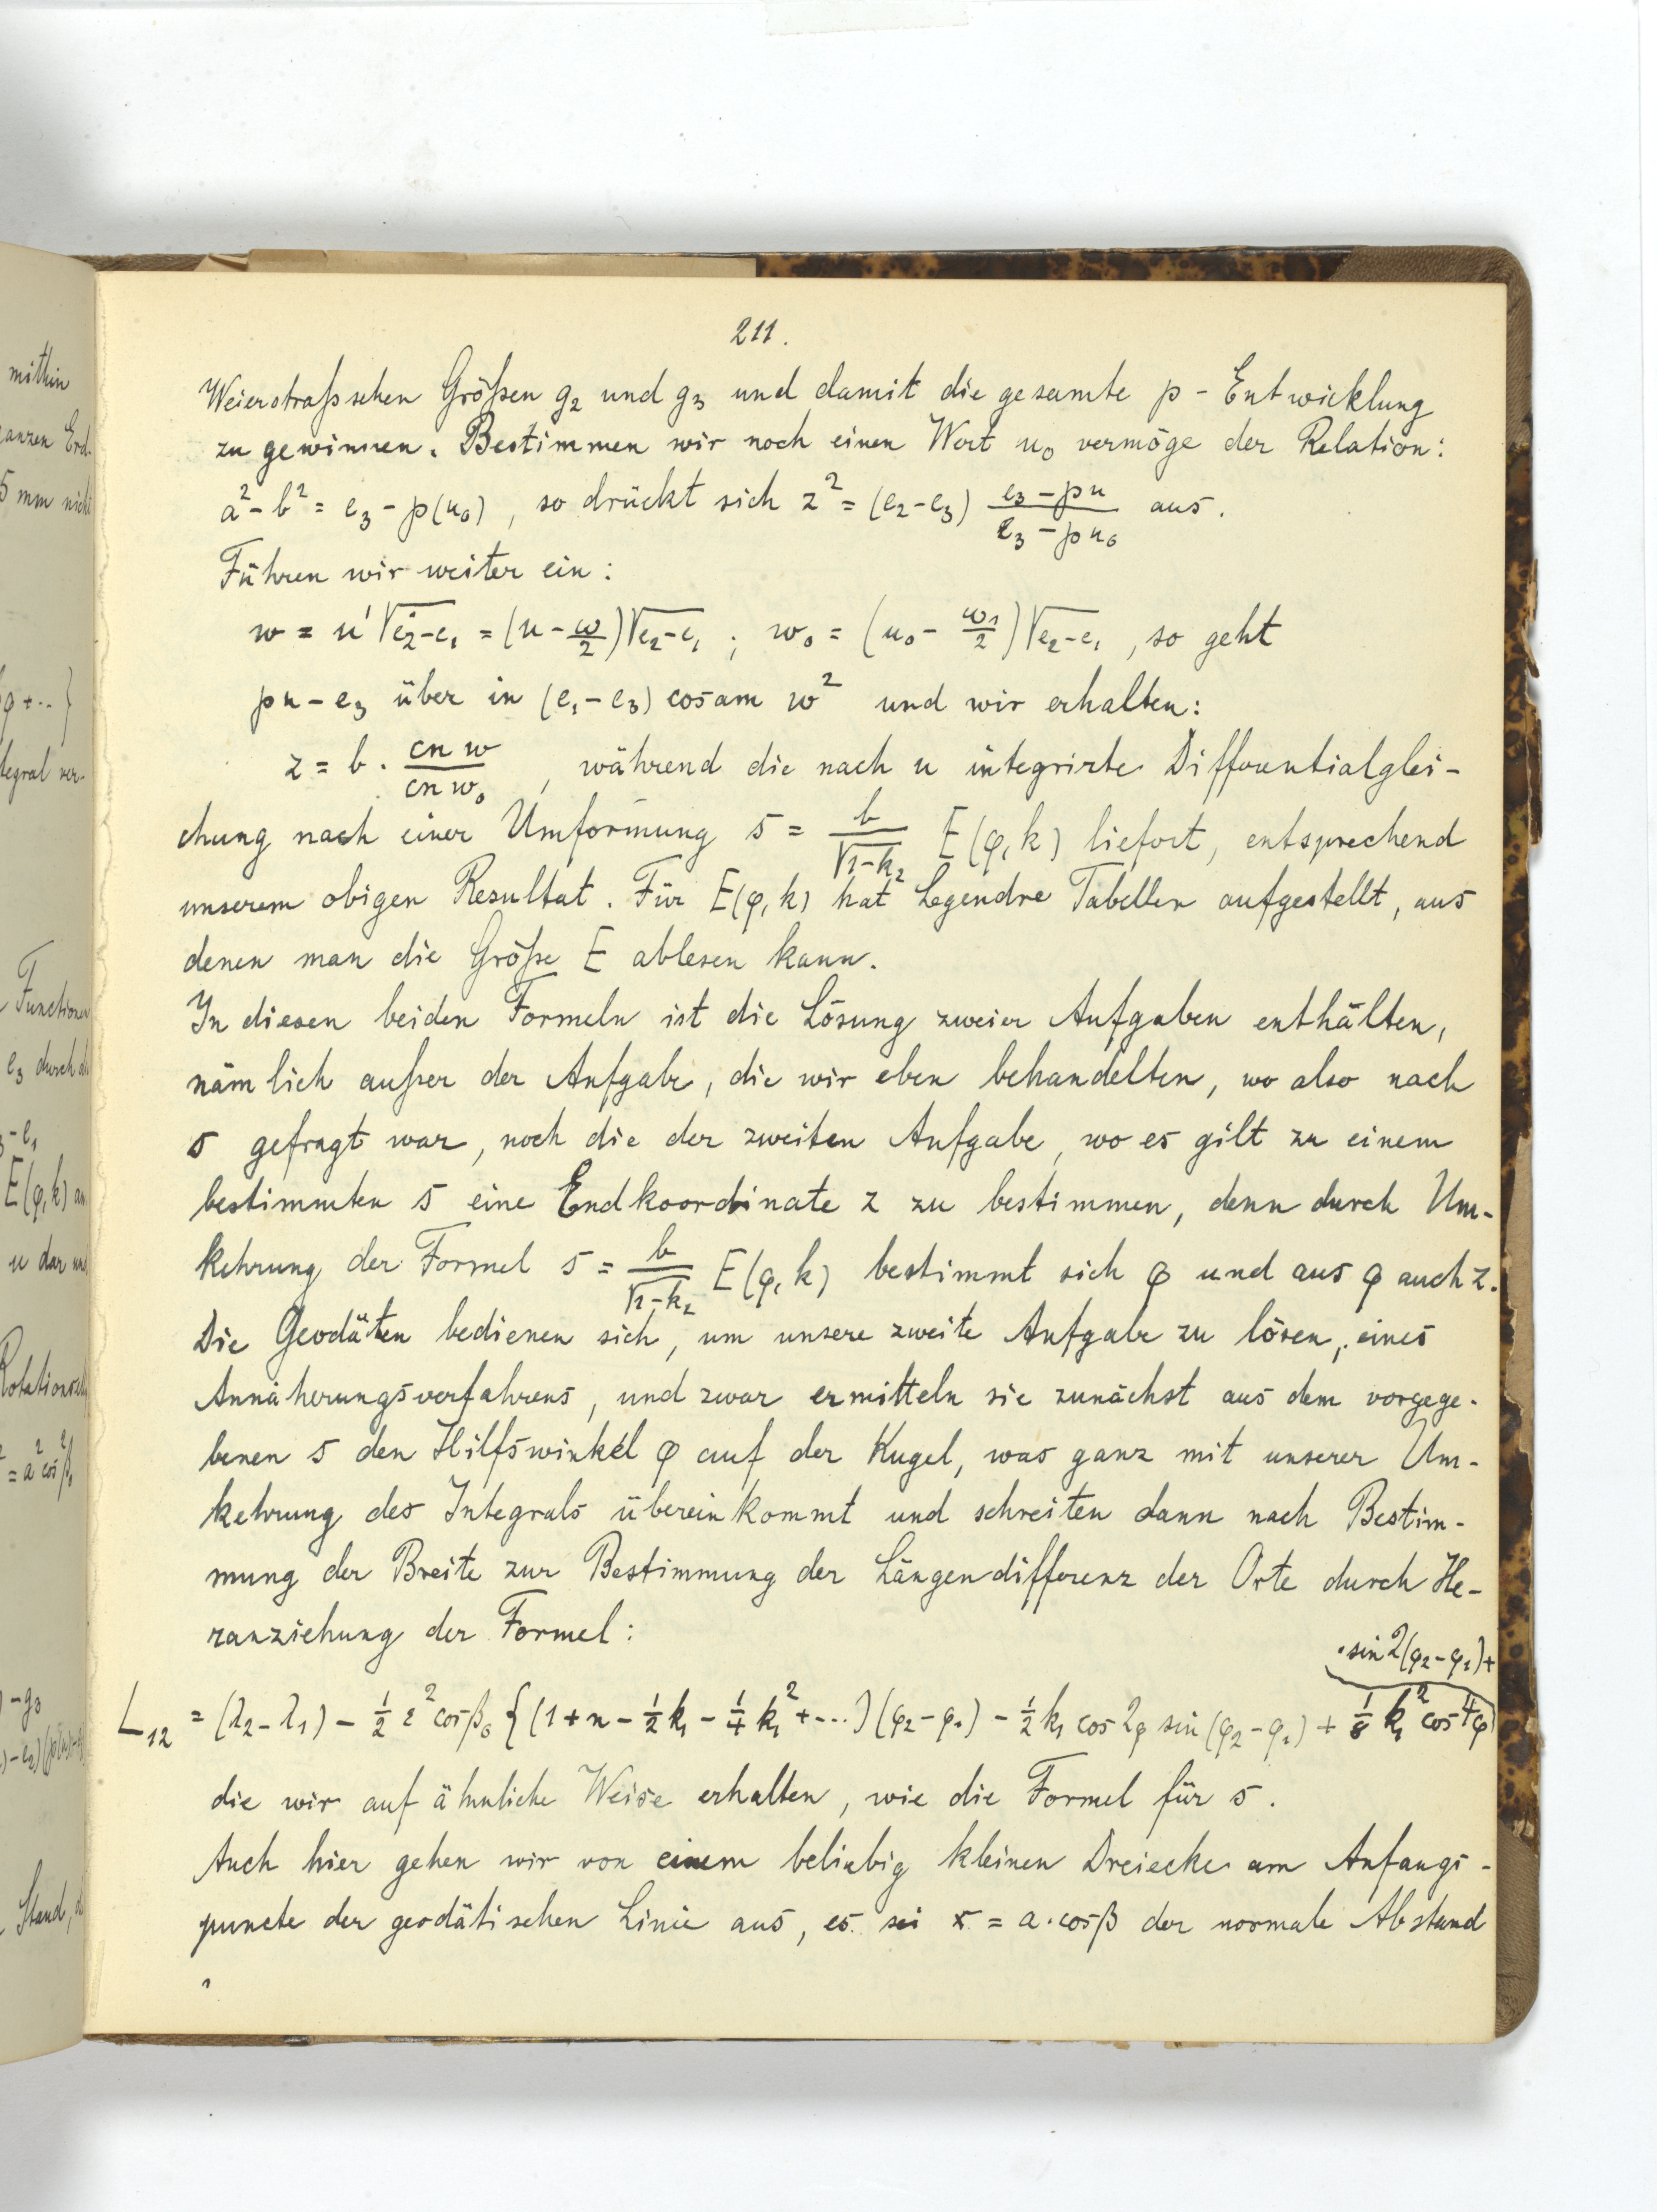 211.
Weierstraßschen Größen g₂ und g₃ und damit die gesamte p-Entwicklung
zu gewinnen. Bestimmen wir noch einen Wert u₀ vermöge der Relation:
a² - b² = e₃ - p(u₀), so drückt sich z² = (e₂-e₃) (e₃-pu)/(e₃-pu₀) aus.
Führen wir weiter ein:
w = u' √(e₂-e₁) = (u - ω/2)√(e₂-e₁) ; w₀ = (u₀ - ω₁/2)√(e₂-e₁), so geht
pu - e₃ über in (e₁-e₃) cosam w² und wir erhalten:
z = b · (cn w)/(cn w₀), während die nach u integrirte Differentialglei-
chung nach einer Umformung s = b/√(1-k₂) E(φ,k) liefert, entsprechend
unserem obigen Resultat. Für E(φ,k) hat Legendre Tabellen aufgestellt, aus
denen man die Größe E ablesen kann.
In diesen beiden Formeln ist die Lösung zweier Aufgaben enthälten,
nämlich außer der Aufgabe, die wir eben behandelten, wo also nach
s gefragt war, noch die der zweiten Aufgabe, wo es gilt zu einem
bestimmten s eine Endkoordinate z zu bestimmen, denn durch Um-
kehrung der Formel s = b/√(1-k₂) E(φ,k) bestimmt sich φ und aus φ auch z.
Die Geodäten bedienen sich, um unsere zweite Aufgabe zu lösen, eines
Annäherungsverfahrens, und zwar ermitteln sie zunächst aus dem vorgege-
benen s den Hilfswinkel φ auf der Kugel, was ganz mit unserer Um-
kehrung des Integrals überein kommt und schreiten dann nach Bestim-
mung der Breite zur Bestimmung der Längendifferenz der Orte durch He-
ranziehung der Formel:
· sin 2(φ₂-φ₁)+
L₁₂ = (λ₂-λ₁) - ½ ε² cosβ₀ {(1+n-½k₁-¼k₁²+...)(φ₂-φ₁) - ½k₁ cos 2φ sin(φ₂-φ₁) + ⅛ k₁² cos 4φ
die wir auf ähnliche Weise erhalten, wie die Formel für s.
Auch hier gehen wir von einem beliebig kleinen Dreiecke am Anfangs-
puncte der geodätischen Linie aus, es sei x = a·cosβ der normale Abstand